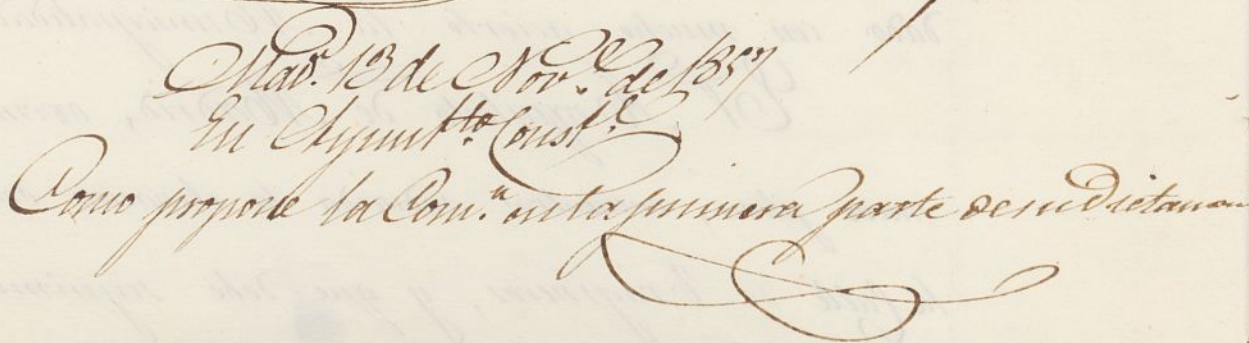 Mad.d 13 de Nov.e de 1857
En Ayunt.to Const.l
Como propone la Com.n en la primera parte de su dictamen